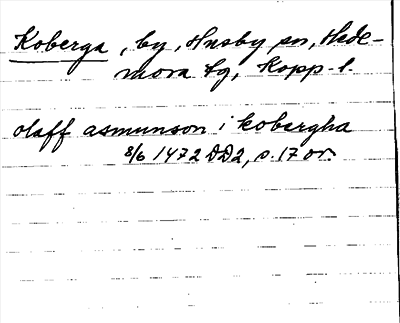 Koberga, by, Husby sn, Hede-
mora tg, Kopp. l.
olaff asmunson i kobergha
8/6 1472 DD2, s. 17 or.